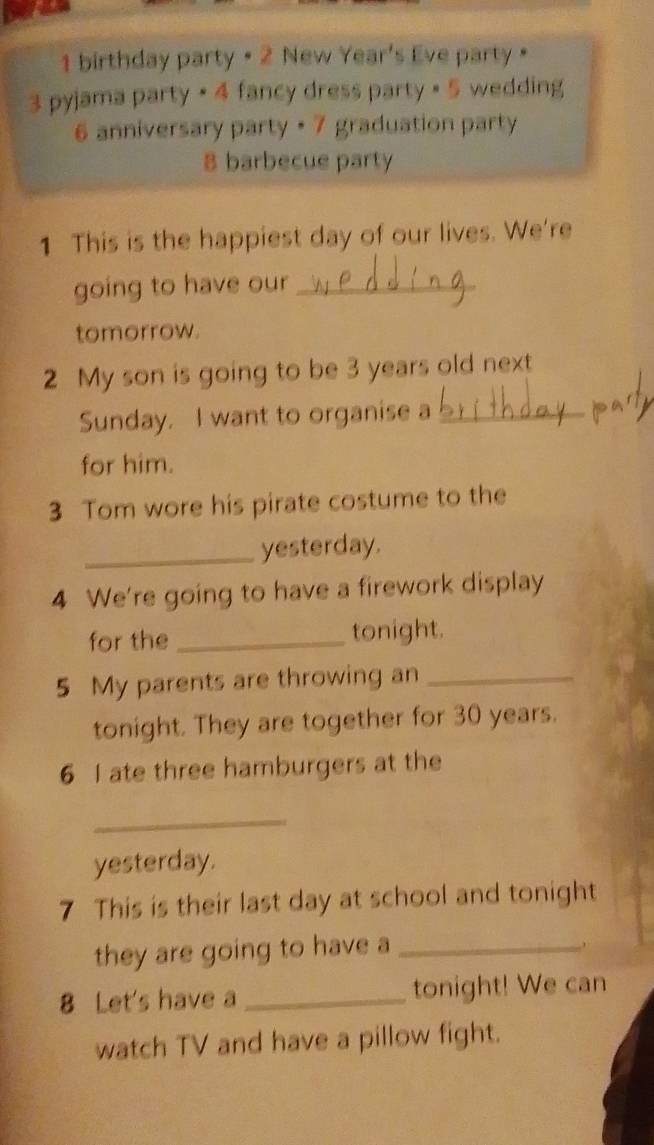 1 birthday party • 2 New Year's Eve party •
3 pyjama party • 4 fancy dress party • 5 wedding
6 anniversary party • 7 graduation party
8 barbecue party
1 This is the happiest day of our lives. We're
going to have our wedding
tomorrow.
2 My son is going to be 3 years old next
Sunday. I want to organise a brithday party
for him.
3 Tom wore his pirate costume to the
____________ yesterday.
4 We're going to have a firework display
for the ____________ tonight.
5 My parents are throwing an ____________
tonight. They are together for 30 years.
6 I ate three hamburgers at the
____________
yesterday.
7 This is their last day at school and tonight
they are going to have a ____________.
8 Let's have a ____________ tonight! We can
watch TV and have a pillow fight.